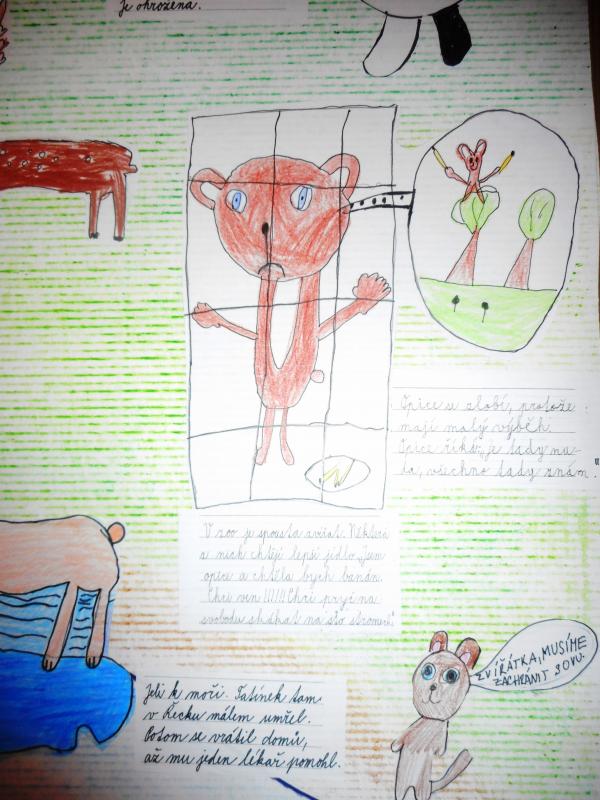 je ohrožena.
Opice se zlobí, protože
mají malý výběh.
Opice říká: „je tady nu-
da, všechno tady znám."
V zoo je spousta zvířat. Některá
z nich chtějí lepší jídlo. „Jsem
opice a chtěla bych banán.
Chci ven !!!!! Chci pryč na
svobodu skákat na sto stromech"
ZVÍŘÁTKA, MUSÍME
ZACHRÁNIT SOVU.
Jeli k moři. Tatínek tam
v Řecku málem umřel.
Potom se vrátil domů,
až mu jeden lékař pomohl.